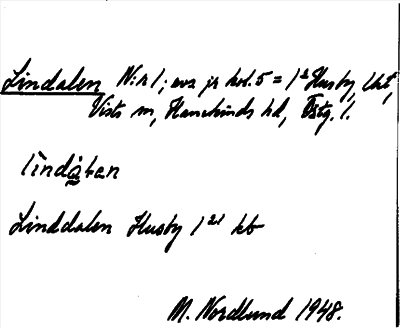 Lindalen N:r 1; avs jr kol. 5 = 1 2 Husby, Ukt,
Vists sn, Hanekinds hd, Östg. l.
lindåɫen
Linddalen Husby 1 21 kb
M. Nordlund 1948.